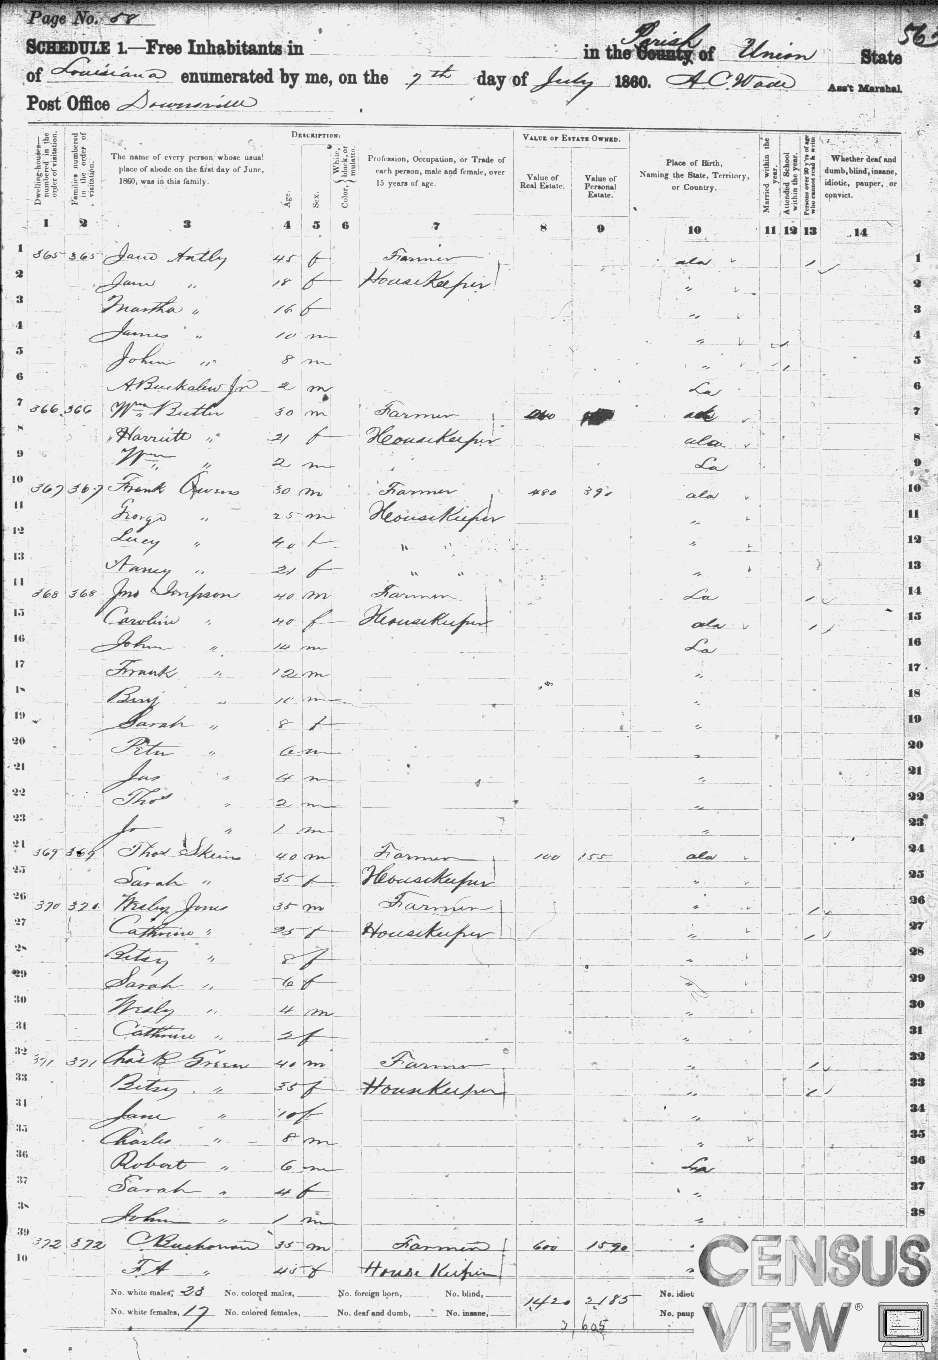 Page No. 58
SCHEDULE 1.—Free Inhabitants in in the County Parish of Union State
of Louisiana enumerated by me, on the 7th day of July 1860. A C Wade Ass't Marshal.
Post Office Downsville
Dwelling-houses—numbered in the order of visitation.
Families numbered in the order of visitation.
The name of every person whose usual place of abode on the first day of June, 1860, was in this family.
DESCRIPTION:
Age.
Sex.
Color, White, black, or mulatto.
Profession, Occupation, or Trade of each person, male and female, over 15 years of age.
VALUE OF ESTATE OWNED.
Value of Real Estate.
Value of Personal Estate.
Place of Birth, Naming the State, Territory, or Country.
Married within the year.
Attended School within the year.
Persons over 20 y'rs of age who cannot read & write.
Whether deaf and dumb, blind, insane, idiotic, pauper, or convict.
1 2 3 4 5 6 7 8 9 10 11 12 13 14
1 365 365 Jane Antly 45 f Farmer ala 1 1
2 Jane " 18 f HouseKeeper " 2
3 Martha " 16 f " 3
4 James " 10 m " 1 4
5 John " 8 m " 1 5
6 A. Buckalew Jr 2 m La 6
7 366 366 Wm Butler 30 m Farmer ala 7
8 Harriett " 21 f HouseKeeper ala 8
9 Wm " 2 m La 9
10 367 367 Frank Owens 30 m Farmer 480 390 ala 10
11 George " 25 m HouseKeeper " 11
12 Lucy " 40 f " " 12
13 Nancy " 21 f " " " 13
14 368 368 Jno Simpson 40 m Farmer La 1 14
15 Caroline " 40 f HouseKeeper ala 1 15
16 John " 14 m La 16
17 Frank " 12 m " 17
18 Benj " 10 m " 18
19 Sarah " 8 f " 19
20 Peter " 6 m " 20
21 Jas " 4 m " 21
22 Thos " 2 m " 22
23 Jo " 1 m " 23
24 369 369 Thos Skeins 40 m Farmer 100 155 ala 24
25 Sarah " 35 f HouseKeeper " 25
26 370 370 Wesley Jones 35 m Farmer " 1 26
27 Cathrine " 25 f HouseKeeper " 1 27
28 Betsy " 8 f " 28
29 Sarah " 6 f " 29
30 Wesly " 4 m " 30
31 Cathrine " 2 f " 31
32 371 371 Chas B Green 40 m Farmer " 1 32
33 Betsy " 35 f HouseKeeper " 1 33
34 Jane " 10 f " 34
35 Charles " 8 m " 35
36 Robert " 6 m La 36
37 Sarah " 4 f " 37
38 John " 1 m " 38
39 372 372 C Buchanan 35 m Farmer 600 1590
40 F A " 45 f House Keeper
No. white males, 23 No. colored males, No. foreign born, No. blind, 1420 2185 No. idiot
No. white females, 17 No. colored females, No. deaf and dumb, No. insane, No. paup
3,605
CENSUS VIEW ®